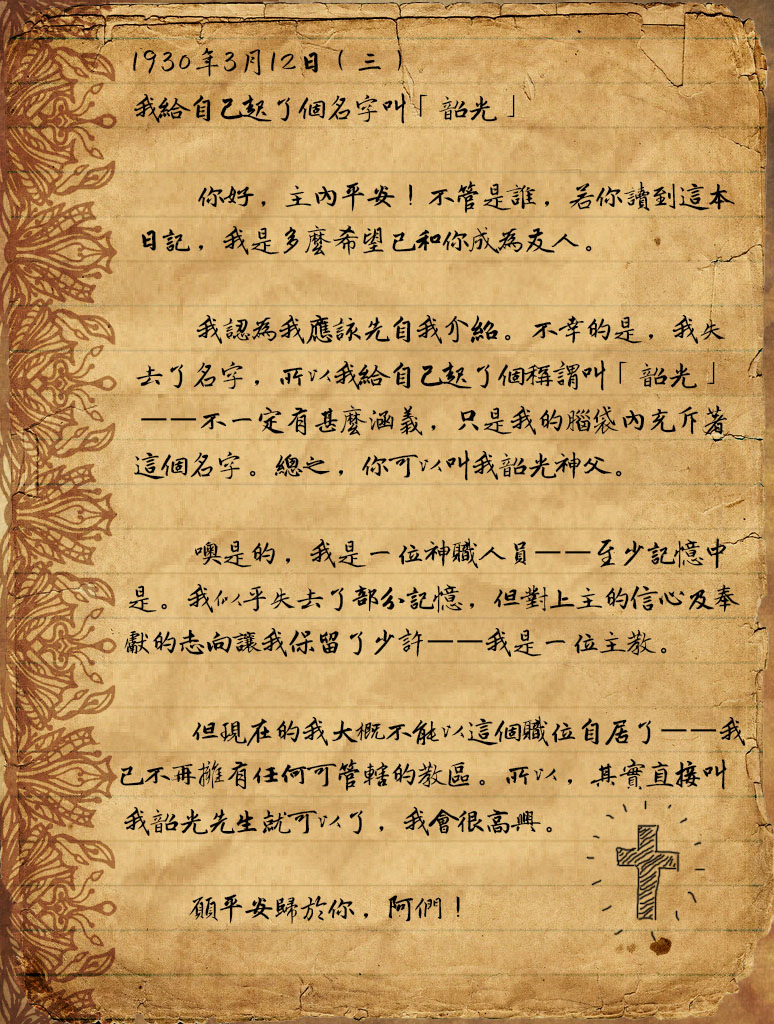 1930年3月12日（三）
我給自己起了個名字叫「韶光」
你好，主內平安！不管是誰，若你讀到這本
日記，我是多麼希望已和你成為友人。
我認為我應該先自我介紹。不幸的是，我失
去了名字，所以我給自己起了個稱謂叫「韶光」
——不一定有甚麼涵義，只是我的腦袋內充斥著
這個名字。總之，你可以叫我韶光神父。
噢是的，我是一位神職人員——至少記憶中
是。我似乎失去了部分記憶，但對上主的信心及奉
獻的志向讓我保留了少許——我是一位主教。
但現在的我大概不能以這個職位自居了——我
已不再擁有任何可管轄的教區。所以，其實直接叫
我韶光先生就可以了，我會很高興。
願平安歸於你，阿們！